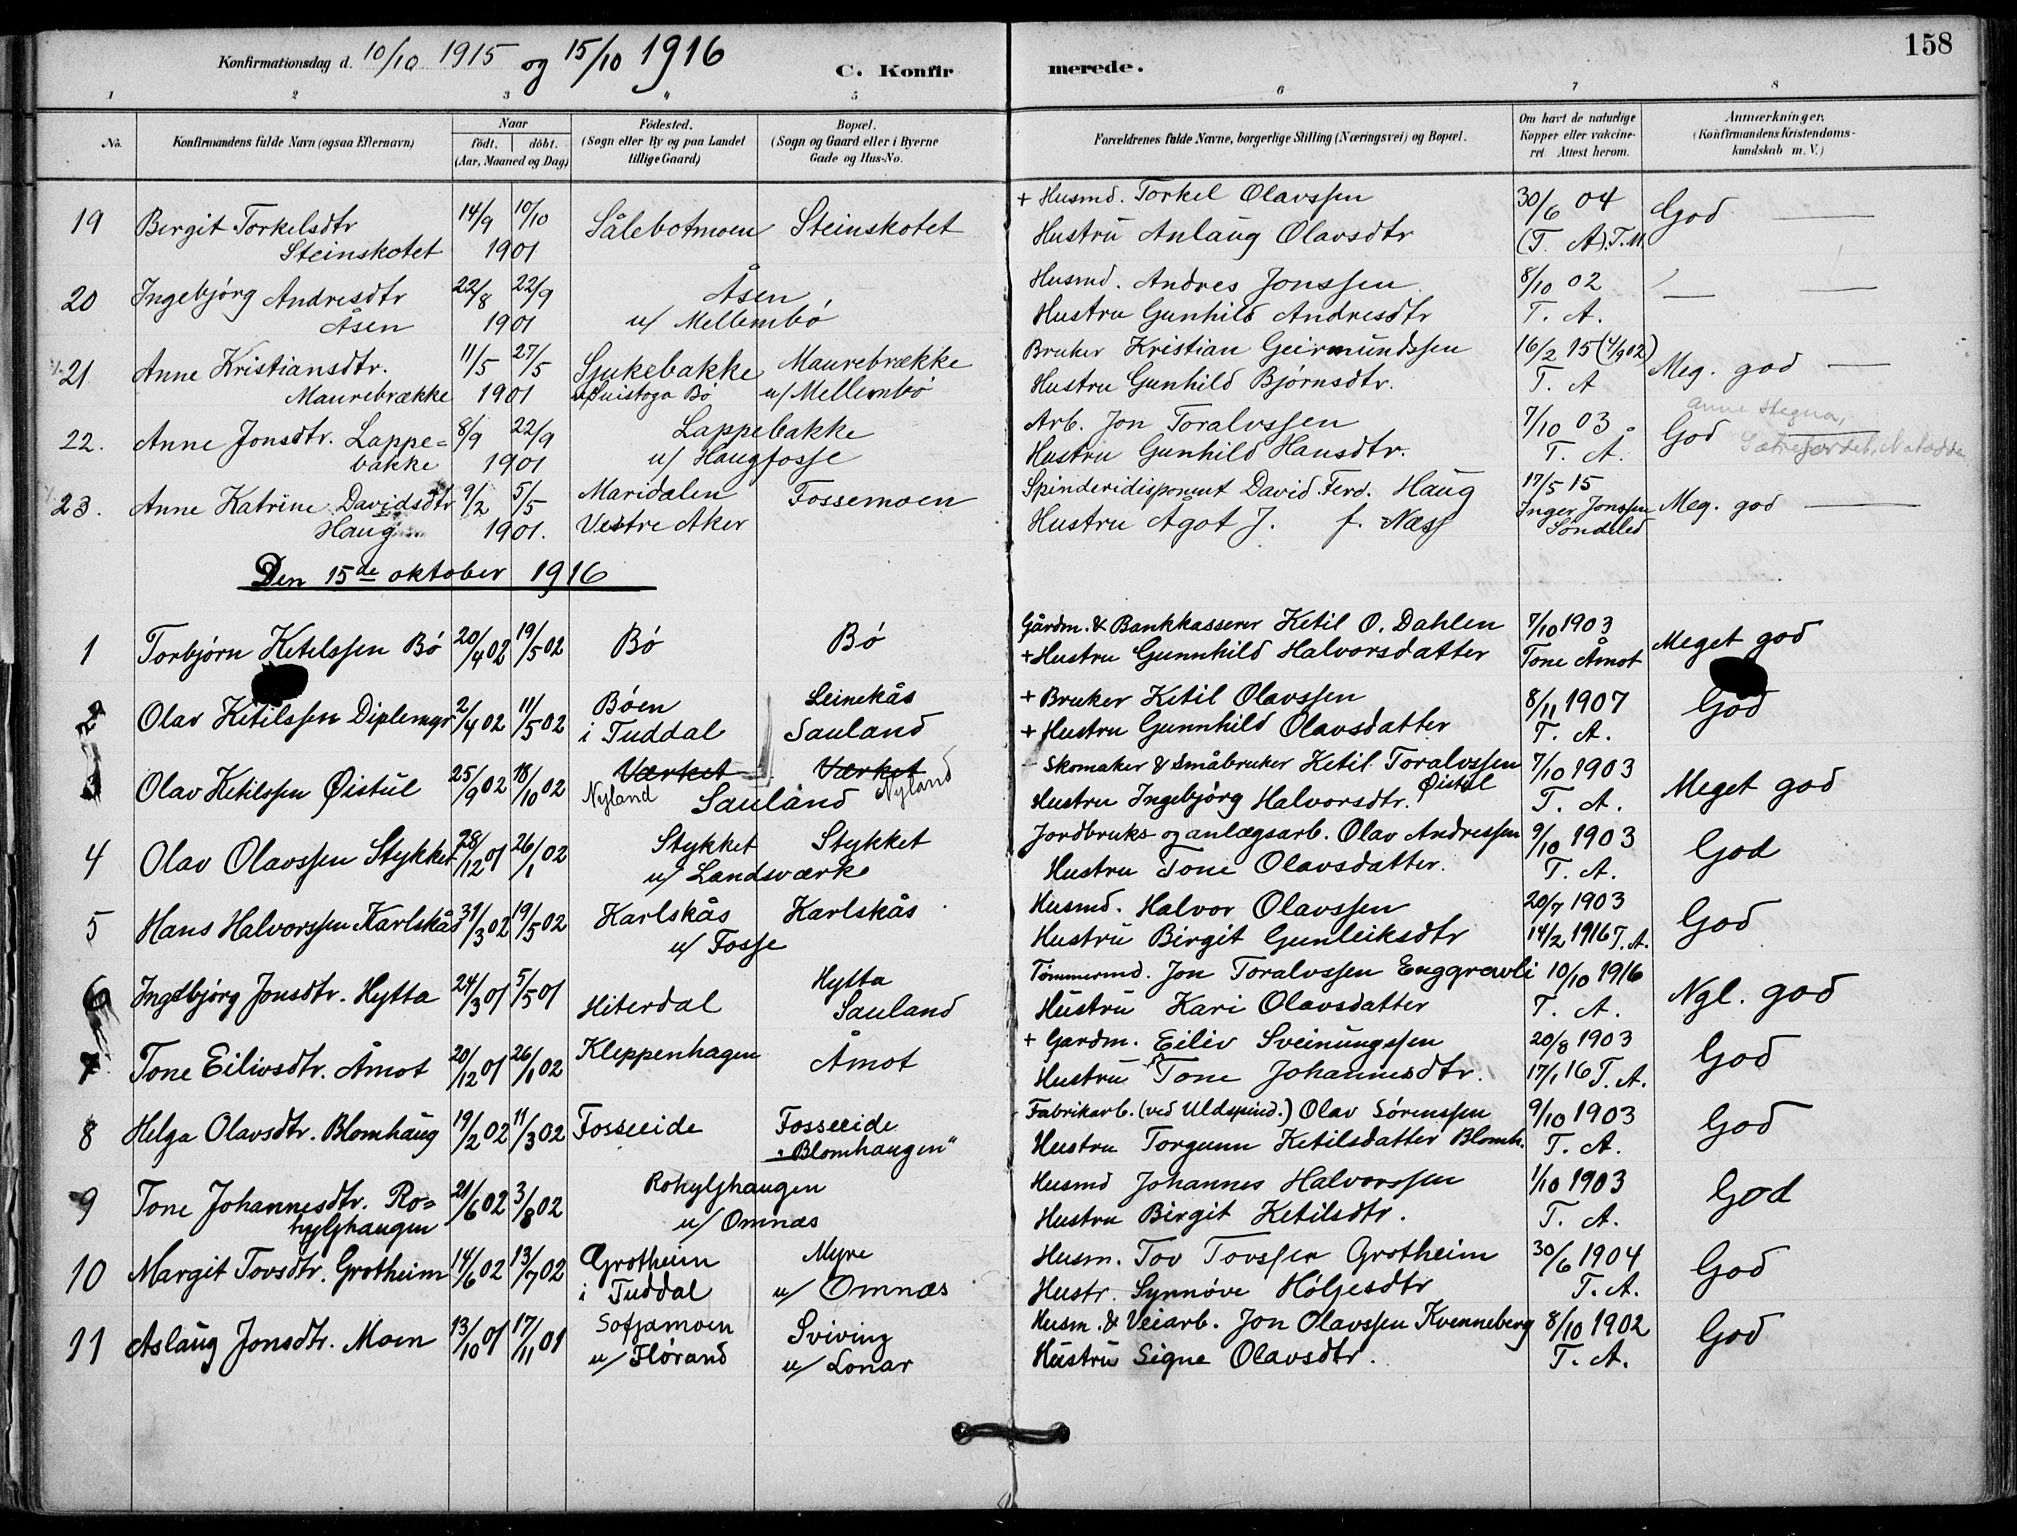 158
Konfirmationsdag d. 10/10 1915 og 15/10 1916
C. Konfirmerede.
1 2 3 4 5 6 7 8
No.
Konfirmandens fulde Navn (ogsaa Efternavn)
Naar
født. døbt.
(Aar, Maaned og Dag)
Fødested.
(Sogn eller By og paa Landet
tillige Gaard)
Bopæl.
(Sogn og Gaard eller i Byerne
Gade og Hus-No.
Forældrenes fulde Navne, borgerlige Stilling (Næringsvei) og Bopæl.
Om havt de naturlige
Kopper eller vakcine-
ret Attest herom.
Anmærkninger.
(Konfirmandens Kristendoms-
kundskab m. V.)
19 Bergit Torkelsdtr 14/9 10/10 Sålebotmoen Steinskotet + Husmd. Torkel Olavssen 30/6 04 God —
Steinskotet 1901 Hustru Anlaug Olavsdtr (T. A). T. M.
20 Ingebjørg Andresdtr 22/8 22/9 Åsen Husmd. Andres Jonssen 8/10 02 — —
Åsen 1901 u/ Mellembö Hustru Gunhild Andresdtr T. A.
21 Anne Kristiansdtr. 11/5 27/5 Sjukebakke Maurebrække Bruker Kristian Geirmundssen 16/2 15 (4/9 02) Meg. god —
Maurebrække 1901 Bö u/ Mellembö Hustru Gunhild Bjørnsdtr. T. A
22. Anne Jonsdtr. Lappe= 8/9 22/9 Lappebakke Arb. Jon Toralvssen 7/10 03 God Anne Stegna,
bakke 1901 u/ Haugfosse Hustru Gunhild Hansdtr. T. A.
23. Anne Katrine Davidsdtr 9/2 5/5 Maridalen Fossemoen Spinderidisponent David Ferd. Haug 17/5 15 Meg. god —
Haug 1901. Vestre Aker Hustru Ågot J. f. Næss Inger Jonssen
Søndeled
Den 15de oktober 1916
1 Torbjørn Ketilssen Bö 20/4 02 19/5 02 Bö Bö Gårdm. & Bankkasserer Ketil O. Dahlen 7/10 1903 Meget god
+ Hustru Gunnhild Halvorsdatter Tone Åmot
2 Olav Ketilssen Diplemyr 2/4 02 11/5 02 Bøen Leinekås + Bruker Ketil Olavssen 8/11 1907 God
i Tuddal Sauland + Hustru Gunnhild Olavsdatter T. A.
3 Olav Ketilssen Øistul 25/9 02 18/10 02 Værket Værket Skomaker & Småbruker Ketil Toralvssen 7/10 1903 Meget god
Nyland Sauland Nyland Hustru Ingebjörg Halvorsdtr. Øistul T. A.
4 Olav Olavssen Stykket 28/12 01 26/1 02 Stykket Stykket Jordbruks og anlægsarb. Olav Andressen 9/10 1903 God
u/ Landsværke Hustru Tone Olavsdatter. T. A.
5 Hans Halvorssen Karlskås 31/3 02 19/5 02 Karlskås Karlskås Husmd. Halvor Olavssen 20/7 1903 God
u/ Fosse Hustru Birgit Gunleiksdtr 14/2 1916 T. A.
6 Ingebjörg Jonsdtr. Hytta 24/3 01 5/5 01 Hiterdal Hytta Tömmermd. Jon Toralvssen Enggravli 10/10 1916 Ngl. god
Sauland Hustru Kari Olavsdatter T. A.
7 Tone Eilivsdtr. Åmot 20/12 01 26/1 02 Kleppenhagen Åmot + Gardm. Eiliv Sveinungssen 20/8 1903 God
Hustru Tone Johannesdtr. 17/1 16 T. A.
8 Helga Olavsdtr. Blomhaug 19/2 02 11/3 02 Fosseeide Fosseeide Fabrikarb. (ved Uldspind.) Olav Sörenssen 9/10 1903 God
"Blomhaugen" Hustru Torgunn Ketilsdatter Blomh. T. A.
9 Tone Johannesdtr. Ro= 21/6 02 3/8 02 Rohyljhaugen Husmd Johannes Halvorssen 1/10 1903 God
hyljhaugen u/ Omnæs Hustru Birgit Ketilsdtr. T. A.
10 Margit Tovsdtr. Grotheim 14/6 02 13/7 02 Grotheim Myre Husm. Tov Tovssen Grotheim 30/6 1904 God
i Tuddal u/ Omnæs Hustr. Synnöve Höljesdtr T. A.
11 Aslaug Jonsdtr. Moen 13/10 01 17/11 01 Sofjamoen Sviving Husm. & Veiarb. Jon Olavssen Kvenneberg 8/10 1902 God
u/ Flörand u/ Lonar Hustru Signe Olavsdtr. T. A.